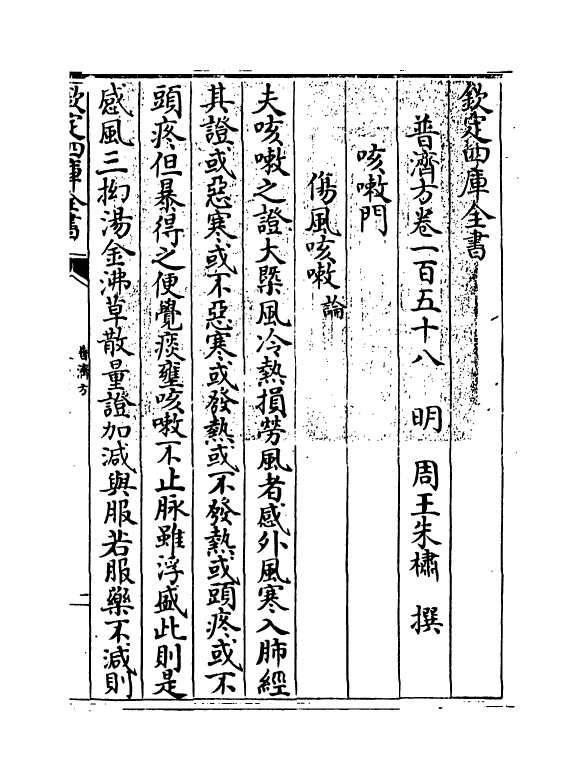 欽定四庫全書
普濟方卷一百五十八 明 周王朱橚 撰
咳嗽門
傷風咳嗽論
夫咳嗽之證大槩風冷熱損勞風者感外風寒入肺經
其證或惡寒或不惡寒或發熱或不發熱或頭疼或不
頭疼但暴得之便覺痰壅咳嗽不止脉雖浮盛此則是
感風三拗湯金沸草散量證加減與服若服藥不減則
欽定四庫全書
普濟方
一